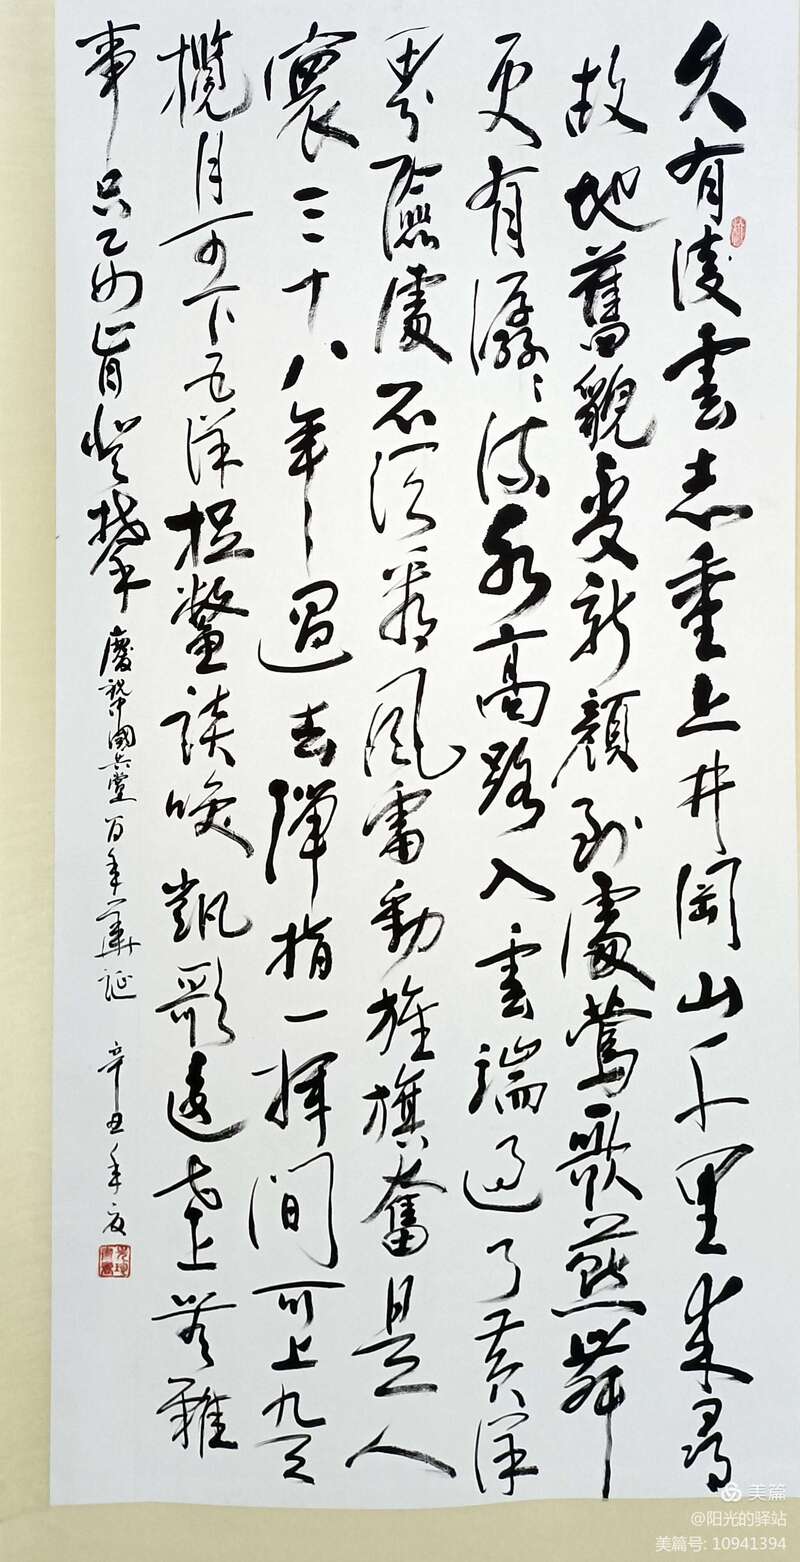 久有凌雲志重上井岡山千里來尋
故地舊貌變新顏到處鶯歌燕舞
更有潺々流水高路入雲端過了黃洋
界險處不須看風雷動旌旗奮是人
寰三十八年過去彈指一揮間可上九天
攬月可下五洋捉鱉談笑凱歌還世上無難
事只要肯登攀 慶祝中國共黨百年華誕 辛丑年夏
美篇
@阳光的驿站
美篇号: 10941394